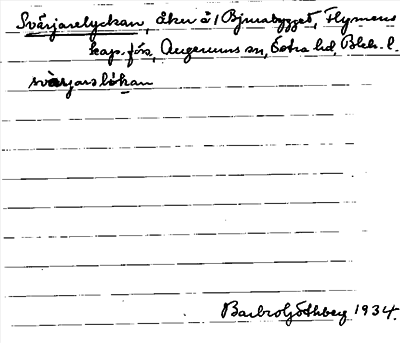 Svärjarelyckan, åker å 1 Bjurabygget, Flymens
kap.förs, Augerums sn, Östra hd, Blek. l.
svärjarslökan
Barbro Ljöthberg 1934.